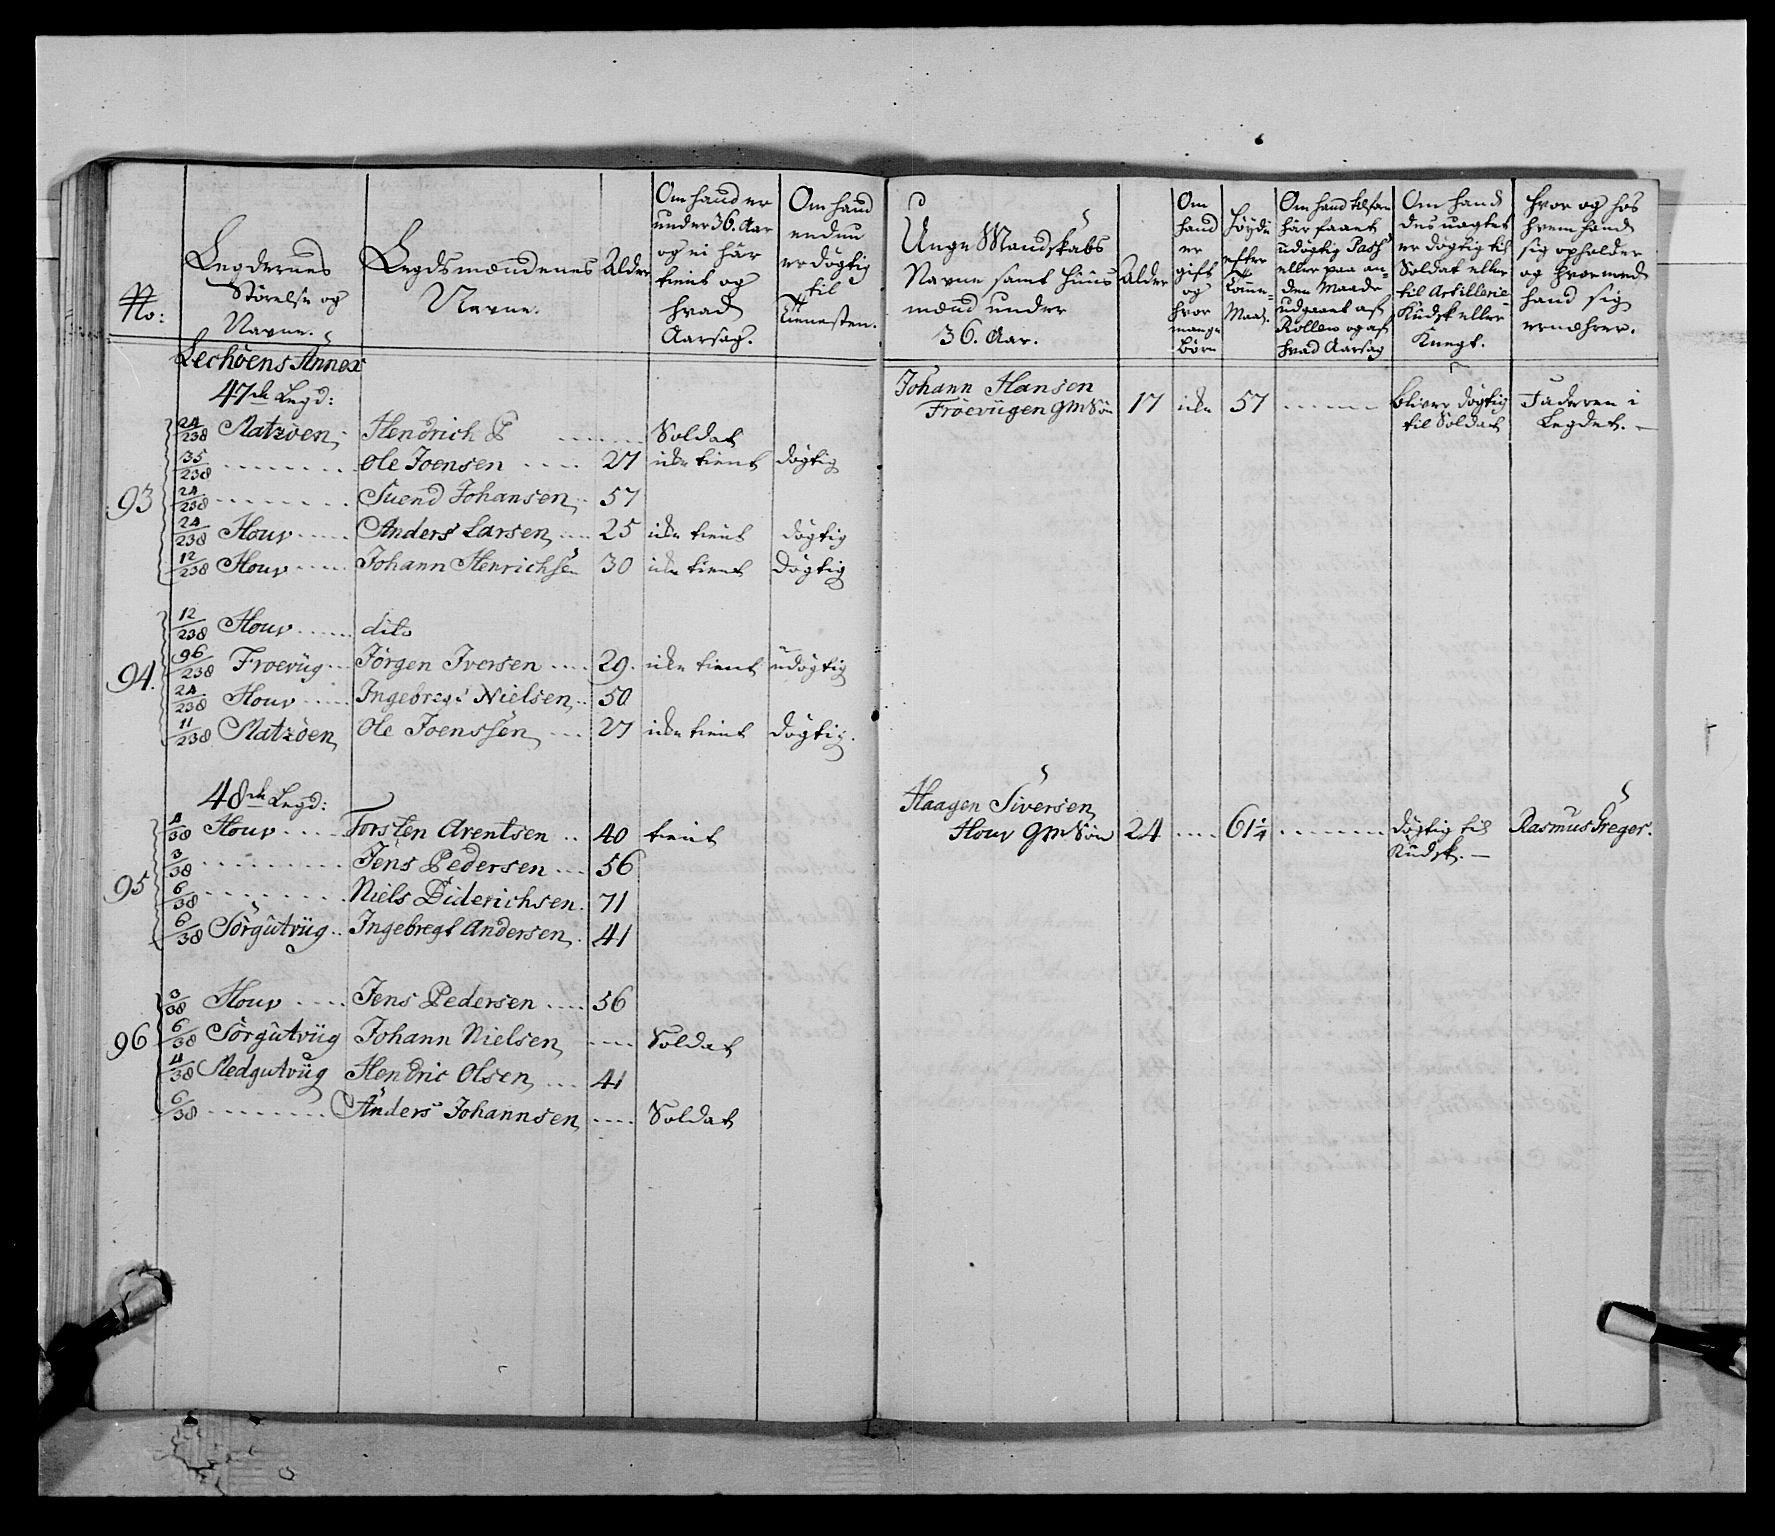 No:
Legdernes
Störelse og
Navne.
Legdsmændenes
Navne.
Alder
Om hand er
under 36. Aar
og ei här
tient og
hvad
Aarsag.
Om hand
endnu
er dögtig
til
Tienesten.
Unge Mandskabs
Navne samt Huus
mænd under
36. Aar.
Alder
Om
hand
er
gift
og
hvor
mange
börn
Höyde
efter
Maal.
Om hand
här faaet
udögtig Pass
eller paa an-
den Maade
udgaaet af
Rollen og af
hvad Aarsag
Om hand
des uagtet
er dögtig til
Soldat eller
til Artillerie
Kudsk eller
Knegt.
hvor og hos
hvem hand
sig opholder
og hvormed
hand sig
ernæhrer.
Lechöens Annex
47de Legd:
Johann Hansen
Fröevügen gm Sön 17 icke 57 ...... bliver dögtig til Soldat Faderen i Legdet. —
93
24/238 Matzöen, Hendrich P ...... Soldat
35/238 ........ Ole Joensen .... 27 icke tient dögtig
24/238 ........ Suend Johansen, 57
24/238 Houv ..... Anders Larsen, .... 25 icke tient dögtig
12/238 Houv ..... Johann Henrichsen 30 icke tient dögtig
94.
12/238 Houv ...... dito
96/238 Froevüg ... Jörgen Iversen .... 29. icke tient udögtig
24/238 Houv ..... Ingebregt Nielsen, .. 50
11/238 Matzöen, Ole Joenssen, ... 27 icke tient dögtig.
48de Legd:
Haagen Siversen,
Houv gm Sön 24 .... 61 1/4 ....... dögtig til Kudsk. — Rasmus Greger.
95
4/38 Houv ..... Torsten Arentsen .. 40 tient
3/38 ......... Jens Pedersen ... 56
6/38 ......... Niels Diderichsen. 71
6/38 Sörgutvüg .. Ingebregt Andersen, . 41
96
3/38 Houv ..... Jens Pedersen .... 56
6/38 Sörgutvüg Johann Nielsen, .... Soldat
4/38 Medgutvüg Hendric Olsen, .... 41
6/38 ......... Anders Johannsen, .... Soldat